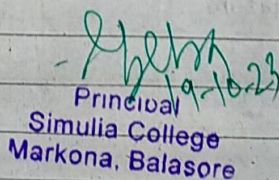 19-10-23
Principal
Simulia College
Markona, Balasore